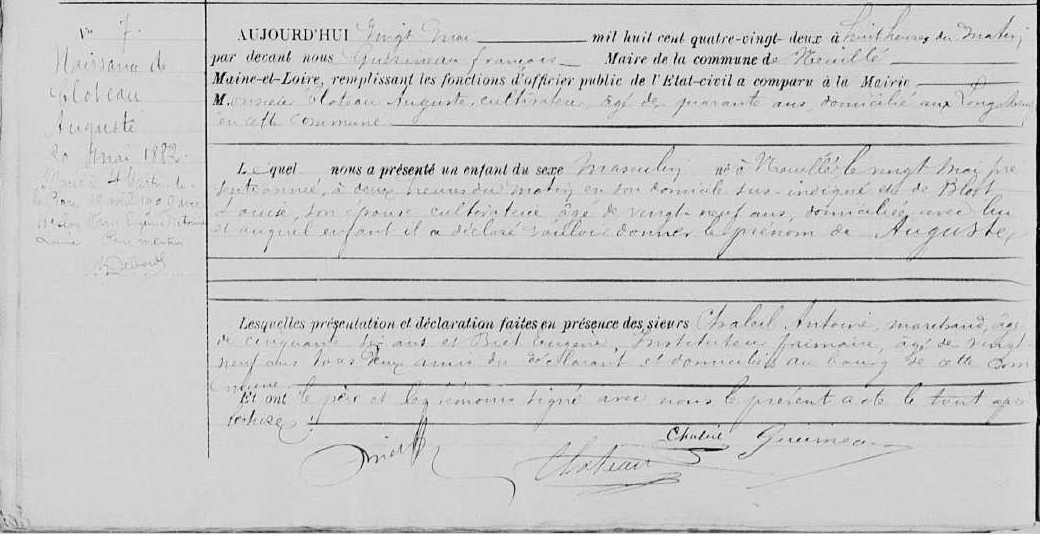 N° 7.
Naissance de
Cloteau
Auguste
20 Mai 1882.
AUJOURD'HUI Vingt Mai mil huit cent quatre-vingt-deux à huit heures du Matin,
par devant nous Guérineau François Maire de la commune de Neuillé
Maine-et-Loire, remplissant les fonctions d'officier public de l'Etat-civil a comparu à la Mairie
Monsieur Cloteau Auguste, cultivateur, âgé de quarante ans, domicilié aux
en cette Commune
Lequel nous a présenté un enfant du sexe Masculin né à Neuillé le vingt Mai pré
sente année, à deux heures du Matin en son domicile sus-indiqué et de
Louise, son épouse cultivatrice âgé de vingt neuf ans, domiciliée avec lui
et auquel enfant il a déclaré vouloir donner le prénom de Auguste
Lesquelles présentation et déclaration faites en présence des sieurs Chaleil Antoine, marchand, âgé
de cinquante ans et Eugène, Instituteur primaire, âgé de vingt
neuf ans tous deux amis du déclarant et domiciliés au bourg de cette Com
mune
Et ont le père et les témoins signé avec nous le présent acte le tout après
lecture
Chaleil Guérineau
Cloteau